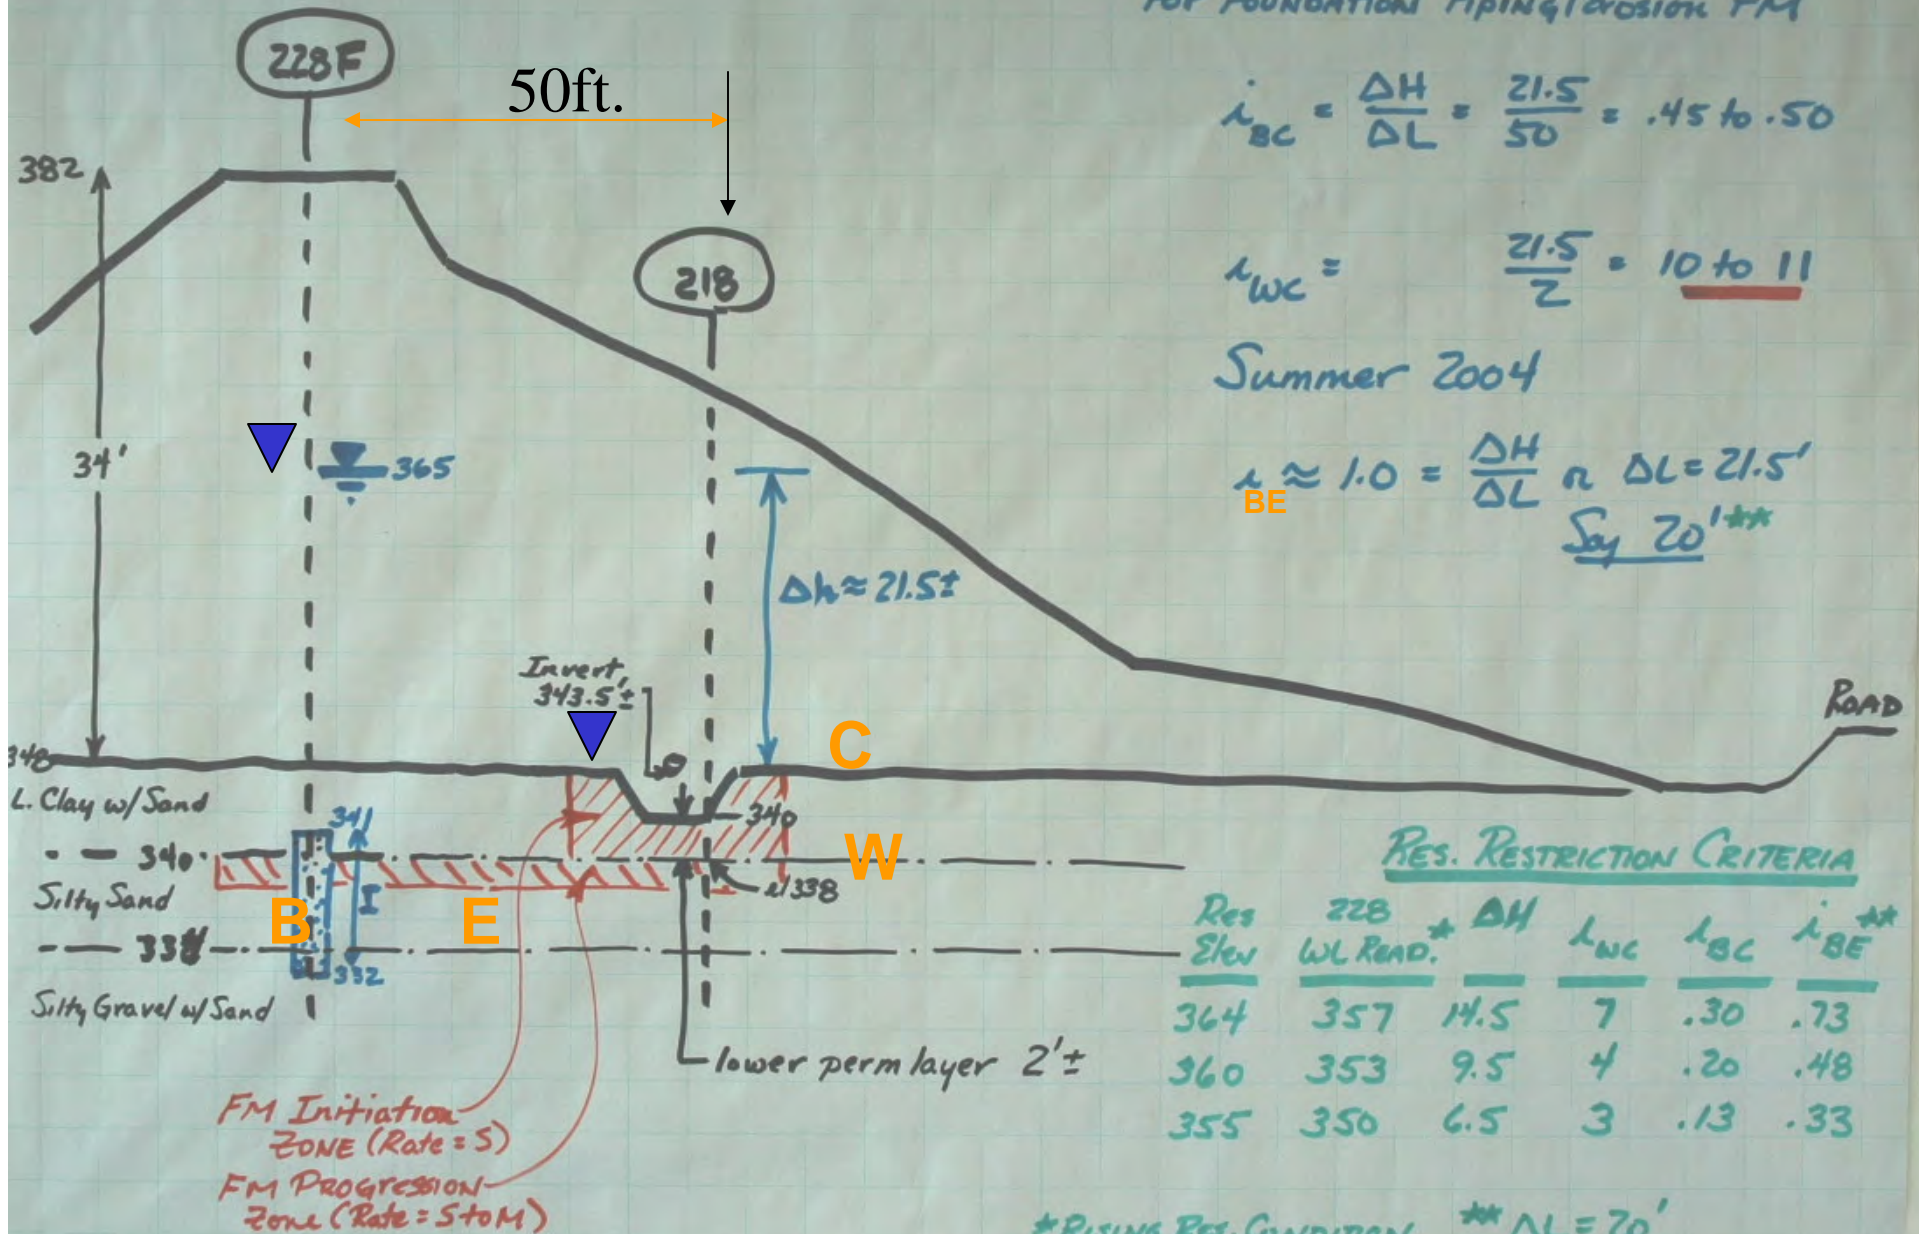 FOR FOUNDATION PIPING/EROSION FM
228F
50ft.
i BC = ΔH/ΔL = 21.5/50 = .45 to .50
382
218
i WC = 21.5/2 = 10 to 11
Summer 2004
34'
365
i BE ≈ 1.0 = ΔH/ΔL or ΔL = 21.5'
Say 20' **
Δh ≈ 21.5±
Invert
343.5'±
C
ROAD
348
L. Clay w/ Sand
341
340
340
W
Silty Sand
el 338
B
I
E
332
Silty Gravel w/ Sand
lower perm layer 2'±
FM Initiation
ZONE (Rate = S)
FM Progression
Zone (Rate = S to M)
RES. RESTRICTION CRITERIA
Res Elev | 228 WL READ.* | ΔH | i WC | i BC | i BE **
364 357 14.5 7 .30 .73
360 353 9.5 4 .20 .48
355 350 6.5 3 .13 .33
*RISING RES. CONDITION ** ΔL = 20'